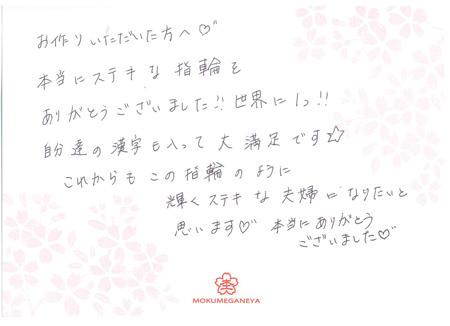 お作りいただいた方へ♡
本当にステキな指輪を
ありがとうございました!!世界に1つ!!
自分達の漢字も入って大満足です☆
これからもこの指輪のように
輝くステキな夫婦になりたいと
思います♡ 本当にありがとう
ございました♡
MOKUMEGANEYA